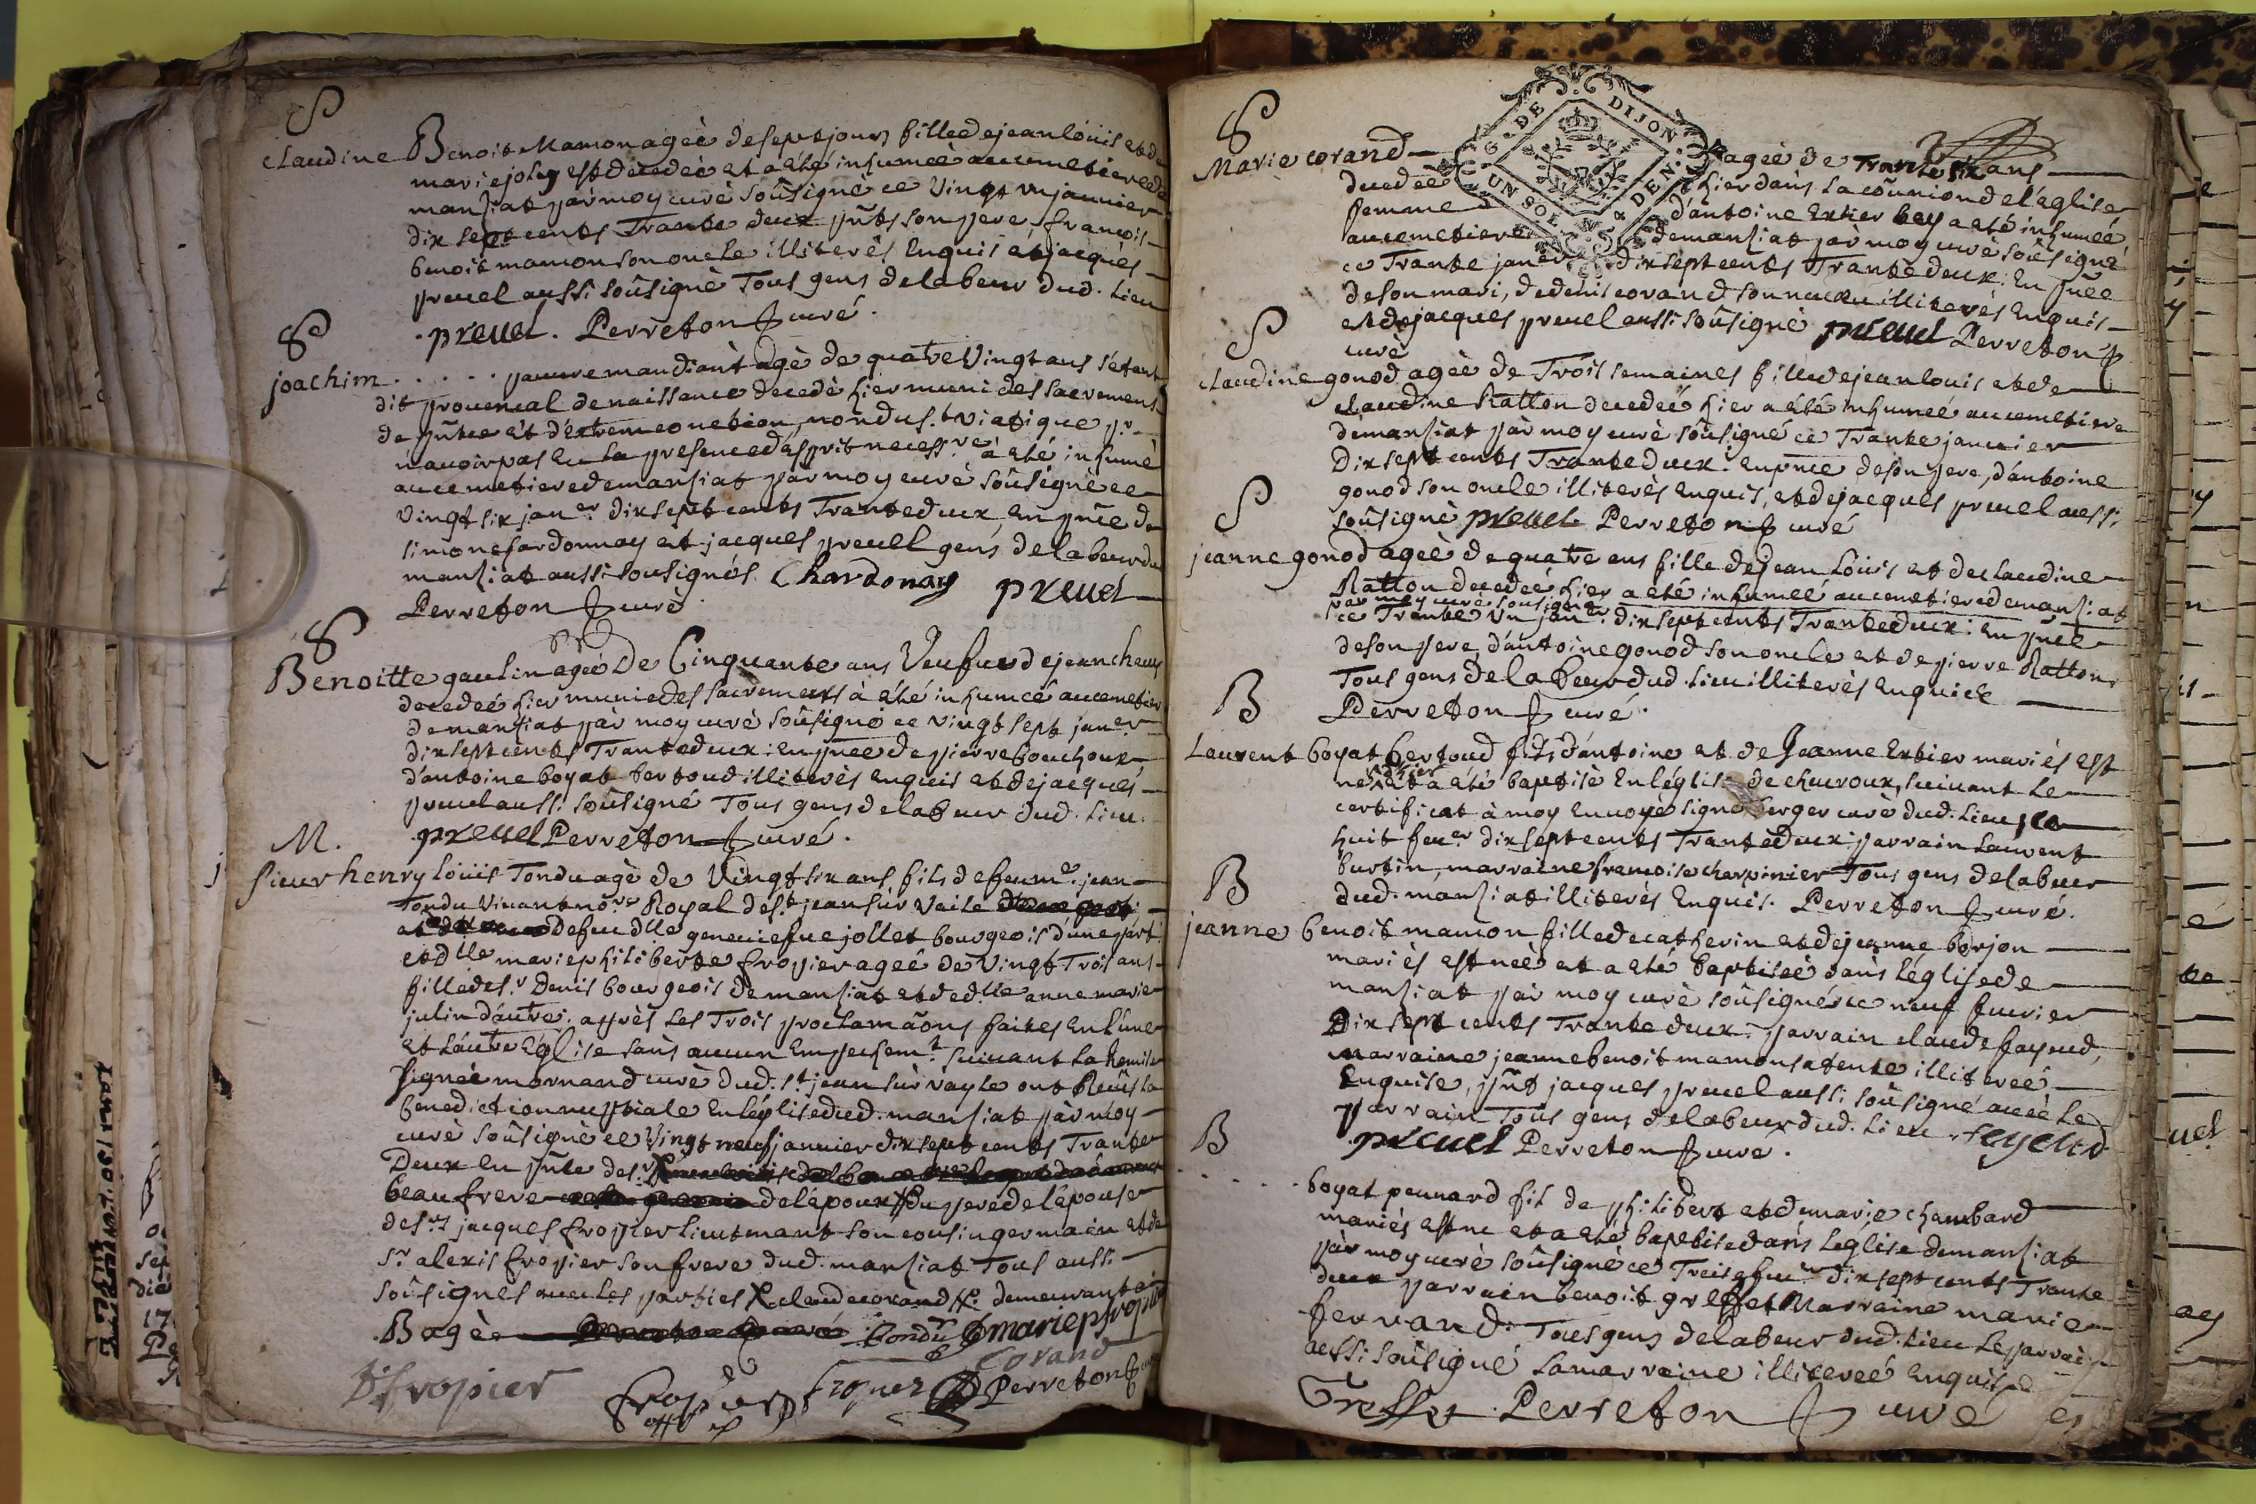 S
claudine Benoit Mamon agèe de sept jours fille de jean loüis et de
marie joly est decedèe et a eté inhumeè au cemetiere de
manziat par moy curè soûsignè ce vingt un janvier
dix sept cents Trante deux pnts son pere, francois
benoit mamon son oncle illiterès Enquis et jacques
preuel aussi soûsignè Tous gens de labeur dud. lieu
preuel. Perreton curé.
S
joachim . . . . . . pauvre mandiant agè de quatre vingt ans s'etant
dit provencal de naissance decedè hier muni des sacremens
de pnitce et d'Extrem onction, non du st viatique pr
n'avoir pas eu la presence d'esprit necessre a eté inhumè
au cemetiere de manziat par moy curè soûsignè ce
vingt six janer dix sept cents Trante deux En pnce de
simon chardonnay et jacques preuel gens de labeur du
manziat aussi sousignés. Chardonay preuel
Perreton curè
S
Benoitte gaulin ageè De Cinquante ans Veufue de jean
decedeé hier munie des sacremens à été inhumeé au cemetiere
de manziat par moy curè soûsignè ce vingt sept janer
dix sept cents Trante deux: en pnce de pierre bouchoux
d'antoine boyat bertoud illiterès enquis et de jacques
preuel aussi soûsigné Tous gens de labeur dud. lieu.
preuel Perreton curé.
M.
sieur henry loüis Tondu agè de Vingt six ans fils de feu mr. jean
Tondu Vivant nore Royal de st jean sur Veile
et de feue dlle geneviefue jollet bourgeois d'une part
et dlle marie philiberte fropier ageé de vingt Trois ans
fille de sr Denis bourgeois de manziat et de dlle anne marie
julin d'autre; après les Trois proclamaons faites en l'une
et l'autre Eglise sans aucun Empeschemt. suivant la Remise
signeé mornand curè dud. st jean sur vayle ont Receûs la
benediction nuptiale en l'église dud. manziat par moy
curè soûsignè ce Vingt neuf janvier dix sept cents Trante
Deux En pnce de sr
beaufrere de l'epoux du pere de l'épouse
de srs jacques fropier lieutenant son cousin germain et de
sr alexis fropier son frere dud. manziat Tous aussi
soûsignes avec les parties X claude corand demeurant à
Bagè Tondu marie p fropier
Corand
D fropier fropier fropier Perreton
S
Marie corand ageè de Trante six ans
decedeè hier dans la comunion de l'église
femme d'antoine Extier bey a eté inhumeé
au cemetiere de manziat par moy curè soûsigné
ce Trante janer dix sept cents Trante deux: En pnce
de son mari, de denis corand son neveu illiterés Enquis
et de jacques preuel aussi soûsignè preuel Perreton
curè
S
claudine gonod ageè de Trois semaines fille de jean louis et de
claudine Ratton decedeé hier a été inhumeé au cemetiere
de manziat par moy curè soûsigné ce Trante janvier
Dix sept cents Trante deux: en pnce de son pere, d'antoine
gonod son oncle illiterès Enquis, et de jacques preuel aussi
soûsignè preuel Perreton curé
S
jeanne gonod ageè de quatre ans fille de jean loüis et de claudine
Ratton decedeé hier a eté inhumeé au cemetiere de manziat
par moy curè sousigne
ce Trante un janer. dix sept cents Trante deux: en pnce
de son pere, d'antoine gonod son oncle et de pierre Ratton
Tous gens de labeur dud. lieu illiterès enquis
Perreton curé.
B
Laurent boyat bertoud fils d'antoine et de Jeanne Extier mariés est
nè et a eté baptisè En l'église de chevroux, suivant le
certificat à moy envoyé signé berger curè dud. lieu ce
huit feuer dix sept cents Trante deux: parrain laurent
burtin, marraine francoise charpinier Tous gens de labeur
dud. manziat illiterés Enquis. Perreton curé.
B
jeanne benoit mamon fille de catherin et de jeanne borjon
mariès est neè et a eté baptiseè dans l'église de
manziat par moy curè soûsigné ce neuf fevrier
Dix sept cents Trante deux: parrain claude fayoud,
marraine jeanne benoit mamon sa tente illitereé
Enquise, pnt jacques preuel aussi soûsigné avec le
parrain Tous gens de labeur dud. lieu. feyoud
preuel Perreton curé.
B
. . . . . boyat pennard fils de philibert et de marie chambard
mariés est né et a eté baptisé dans l'église de manziat
par moy curè soûsigné ce Treize feuer Dix sept cents Trante
deux parrain benoit greffet Marraine marie
ferrand. Tous gens de labeur dud. lieu le parrain
aussi soûsigné la marraine illitereé enquise
Greffet Perreton curé